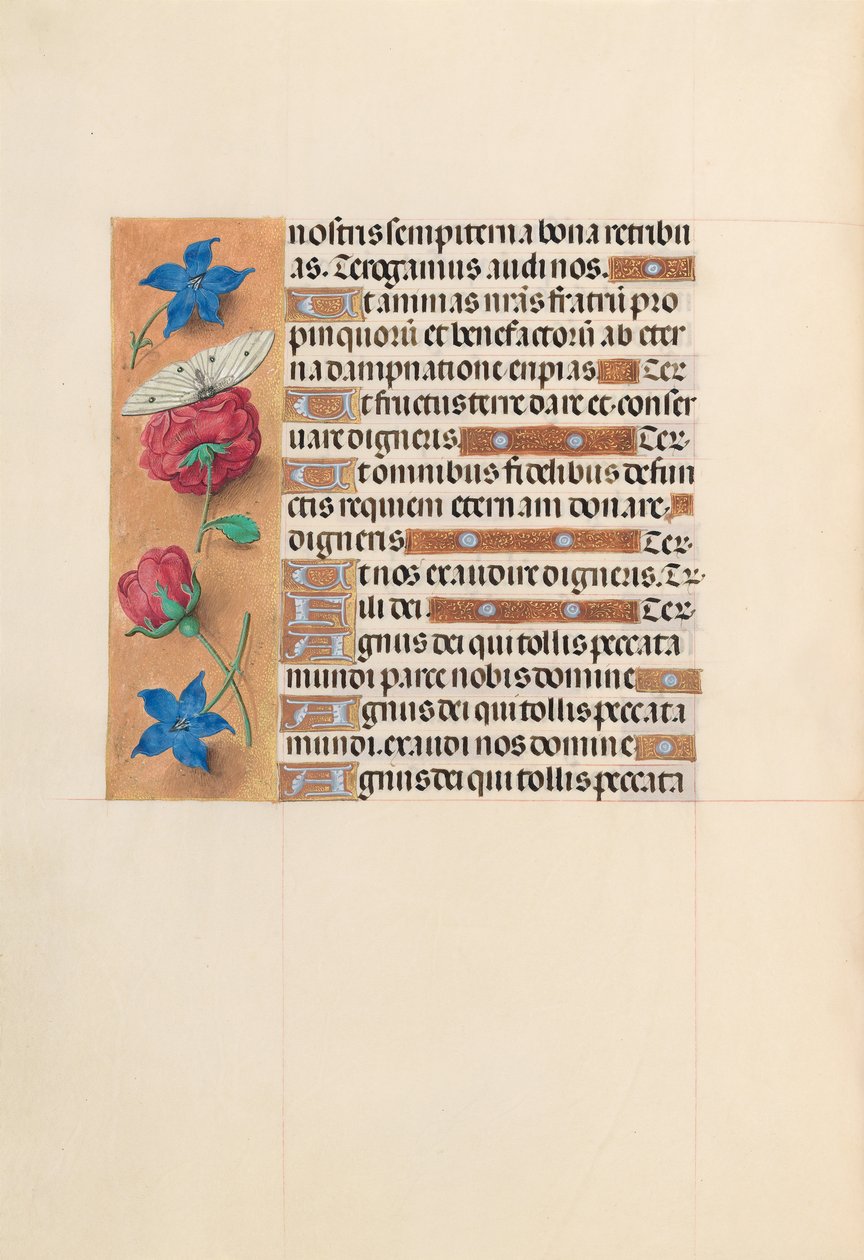 nostris sempiterna bona retribu
as. Te rogamus audi nos.
Ut animas nr̄as fratrū pro
pinquorū et benefactorū ab eter
na dampnatione eripias Te r
Ut fructus terre dare et conser
uare digneris Te r.
Ut omnibus fidelibus defun
ctis requiem eternam donare
digneris Te r.
Ut nos exaudire digneris. Te r.
Fili dei. Te r.
Agnus dei qui tollis peccata
mundi parce nobis domine
Agnus dei qui tollis peccata
mundi. exaudi nos domine
Agnus dei qui tollis peccata